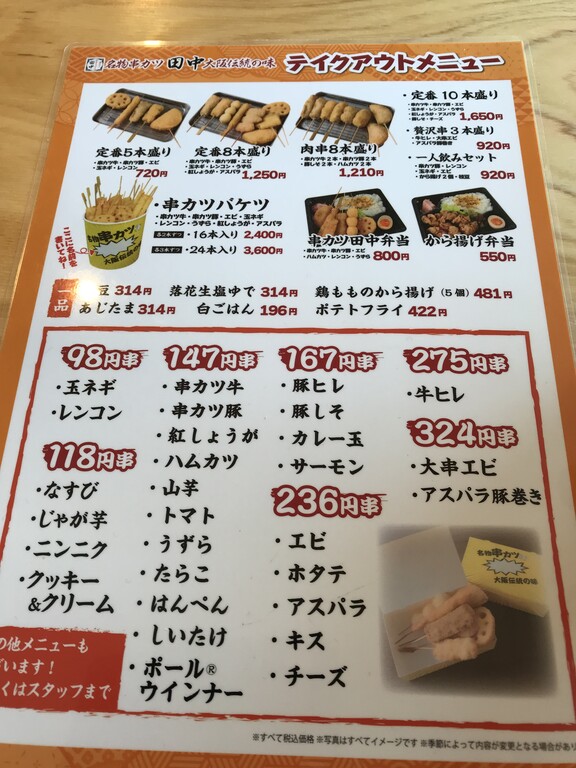 名物串カツ 田中 大阪伝統の味 テイクアウトメニュー
定番5本盛り
・串カツ牛・串カツ豚・エビ
・玉ネギ・レンコン
720円
定番8本盛り
・串カツ牛・串カツ豚・エビ
・玉ネギ・レンコン・うずら
・紅しょうが・アスパラ
1,250円
肉串8本盛り
・串カツ牛2本・串カツ豚2本
・豚しそ2本・ハムカツ2本
1,210円
・定番10本盛り
・串カツ牛・串カツ豚・エビ
・玉ネギ・レンコン・うずら
・紅しょうが・アスパラ
・豚しそ・チーズ
1,650円
・贅沢串3本盛り
・牛ヒレ・大串エビ
・アスパラ豚巻き
920円
・一人飲みセット
・串カツ豚・レンコン
・玉ネギ・エビ
・から揚げ2個・枝豆
920円
ここに名前を
書いてね!
名物 串カツ
大阪伝統の味
・串カツバケツ
・串カツ牛・串カツ豚・エビ・玉ネギ
・レンコン・うずら・紅しょうが・アスパラ
各2本ずつ ・16本入り 2,400円
各3本ずつ ・24本入り 3,600円
串カツ田中弁当
・串カツ牛・串カツ豚・エビ
・ハムカツ・レンコン・うずら
800円
から揚げ弁当
550円
一品
豆 314円 落花生塩ゆで 314円 鶏もものから揚げ (5個) 481円
あじたま 314円 白ごはん 196円 ポテトフライ 422円
98円串
・玉ネギ
・レンコン
118円串
・なすび
・じゃが芋
・ニンニク
・クッキー
&クリーム
147円串
・串カツ牛
・串カツ豚
・紅しょうが
・ハムカツ
・山芋
・トマト
・うずら
・たらこ
・はんぺん
・しいたけ
・ポール®
ウインナー
167円串
・豚ヒレ
・豚しそ
・カレー玉
・サーモン
236円串
・エビ
・ホタテ
・アスパラ
・キス
・チーズ
275円串
・牛ヒレ
324円串
・大串エビ
・アスパラ豚巻き
名物 串カツ
大阪伝統の味
の他メニューも
ざいます!
くはスタッフまで
※すべて税込価格 ※写真はすべてイメージです ※季節によって内容が変更となる場合があり